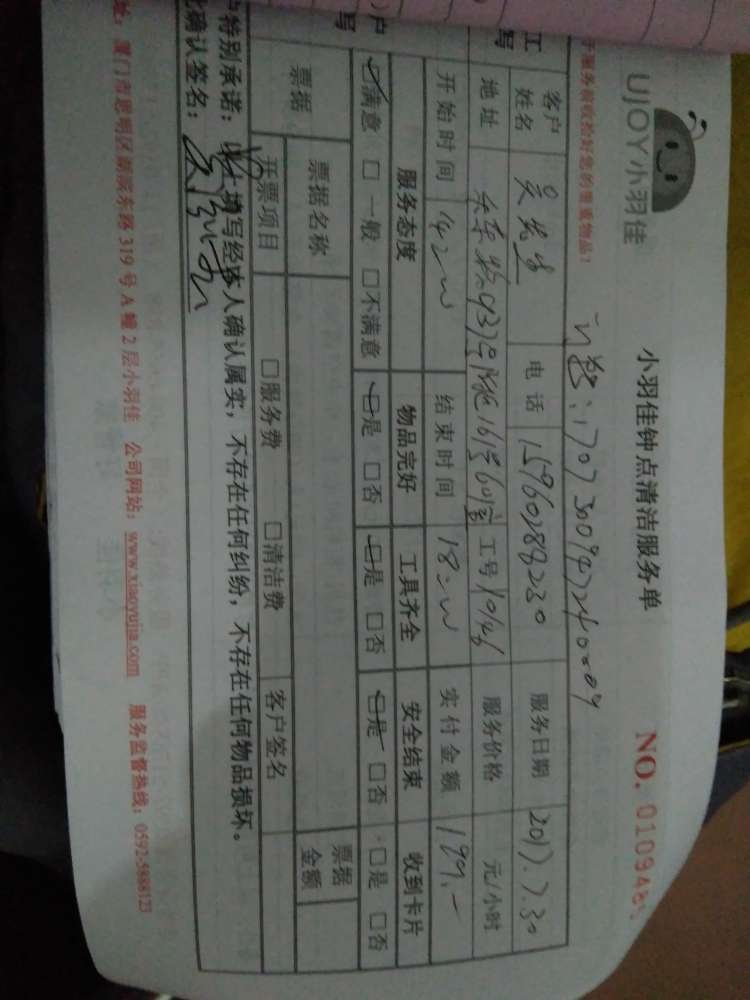 UJOY小羽佳
小羽佳钟点清洁服务单
NO. 010948
服务前收拾好您的贵重物品!
客户姓名 吴先生 电话 15960288230 服务日期 2017.7.30
地址 工号 服务价格 元/小时
开始时间 结束时间 实付金额 199.-
服务态度 物品完好 工具齐全 安全结束 收到卡片
☑满意 □一般 □不满意 ☑是 □否 ☑是 □否 ☑是 □否 □是 □否
票据 票据名称 票据金额
开票项目 □服务费 □清洁费 客户签名
特别承诺:以上填写经本人确认属实,不存在任何纠纷,不存在任何物品损坏。
确认签名:
址:厦门市思明区湖滨东路319号A幢2层小羽佳 公司网站:www.xiaoyujia.com 服务监督热线:0592-5888123